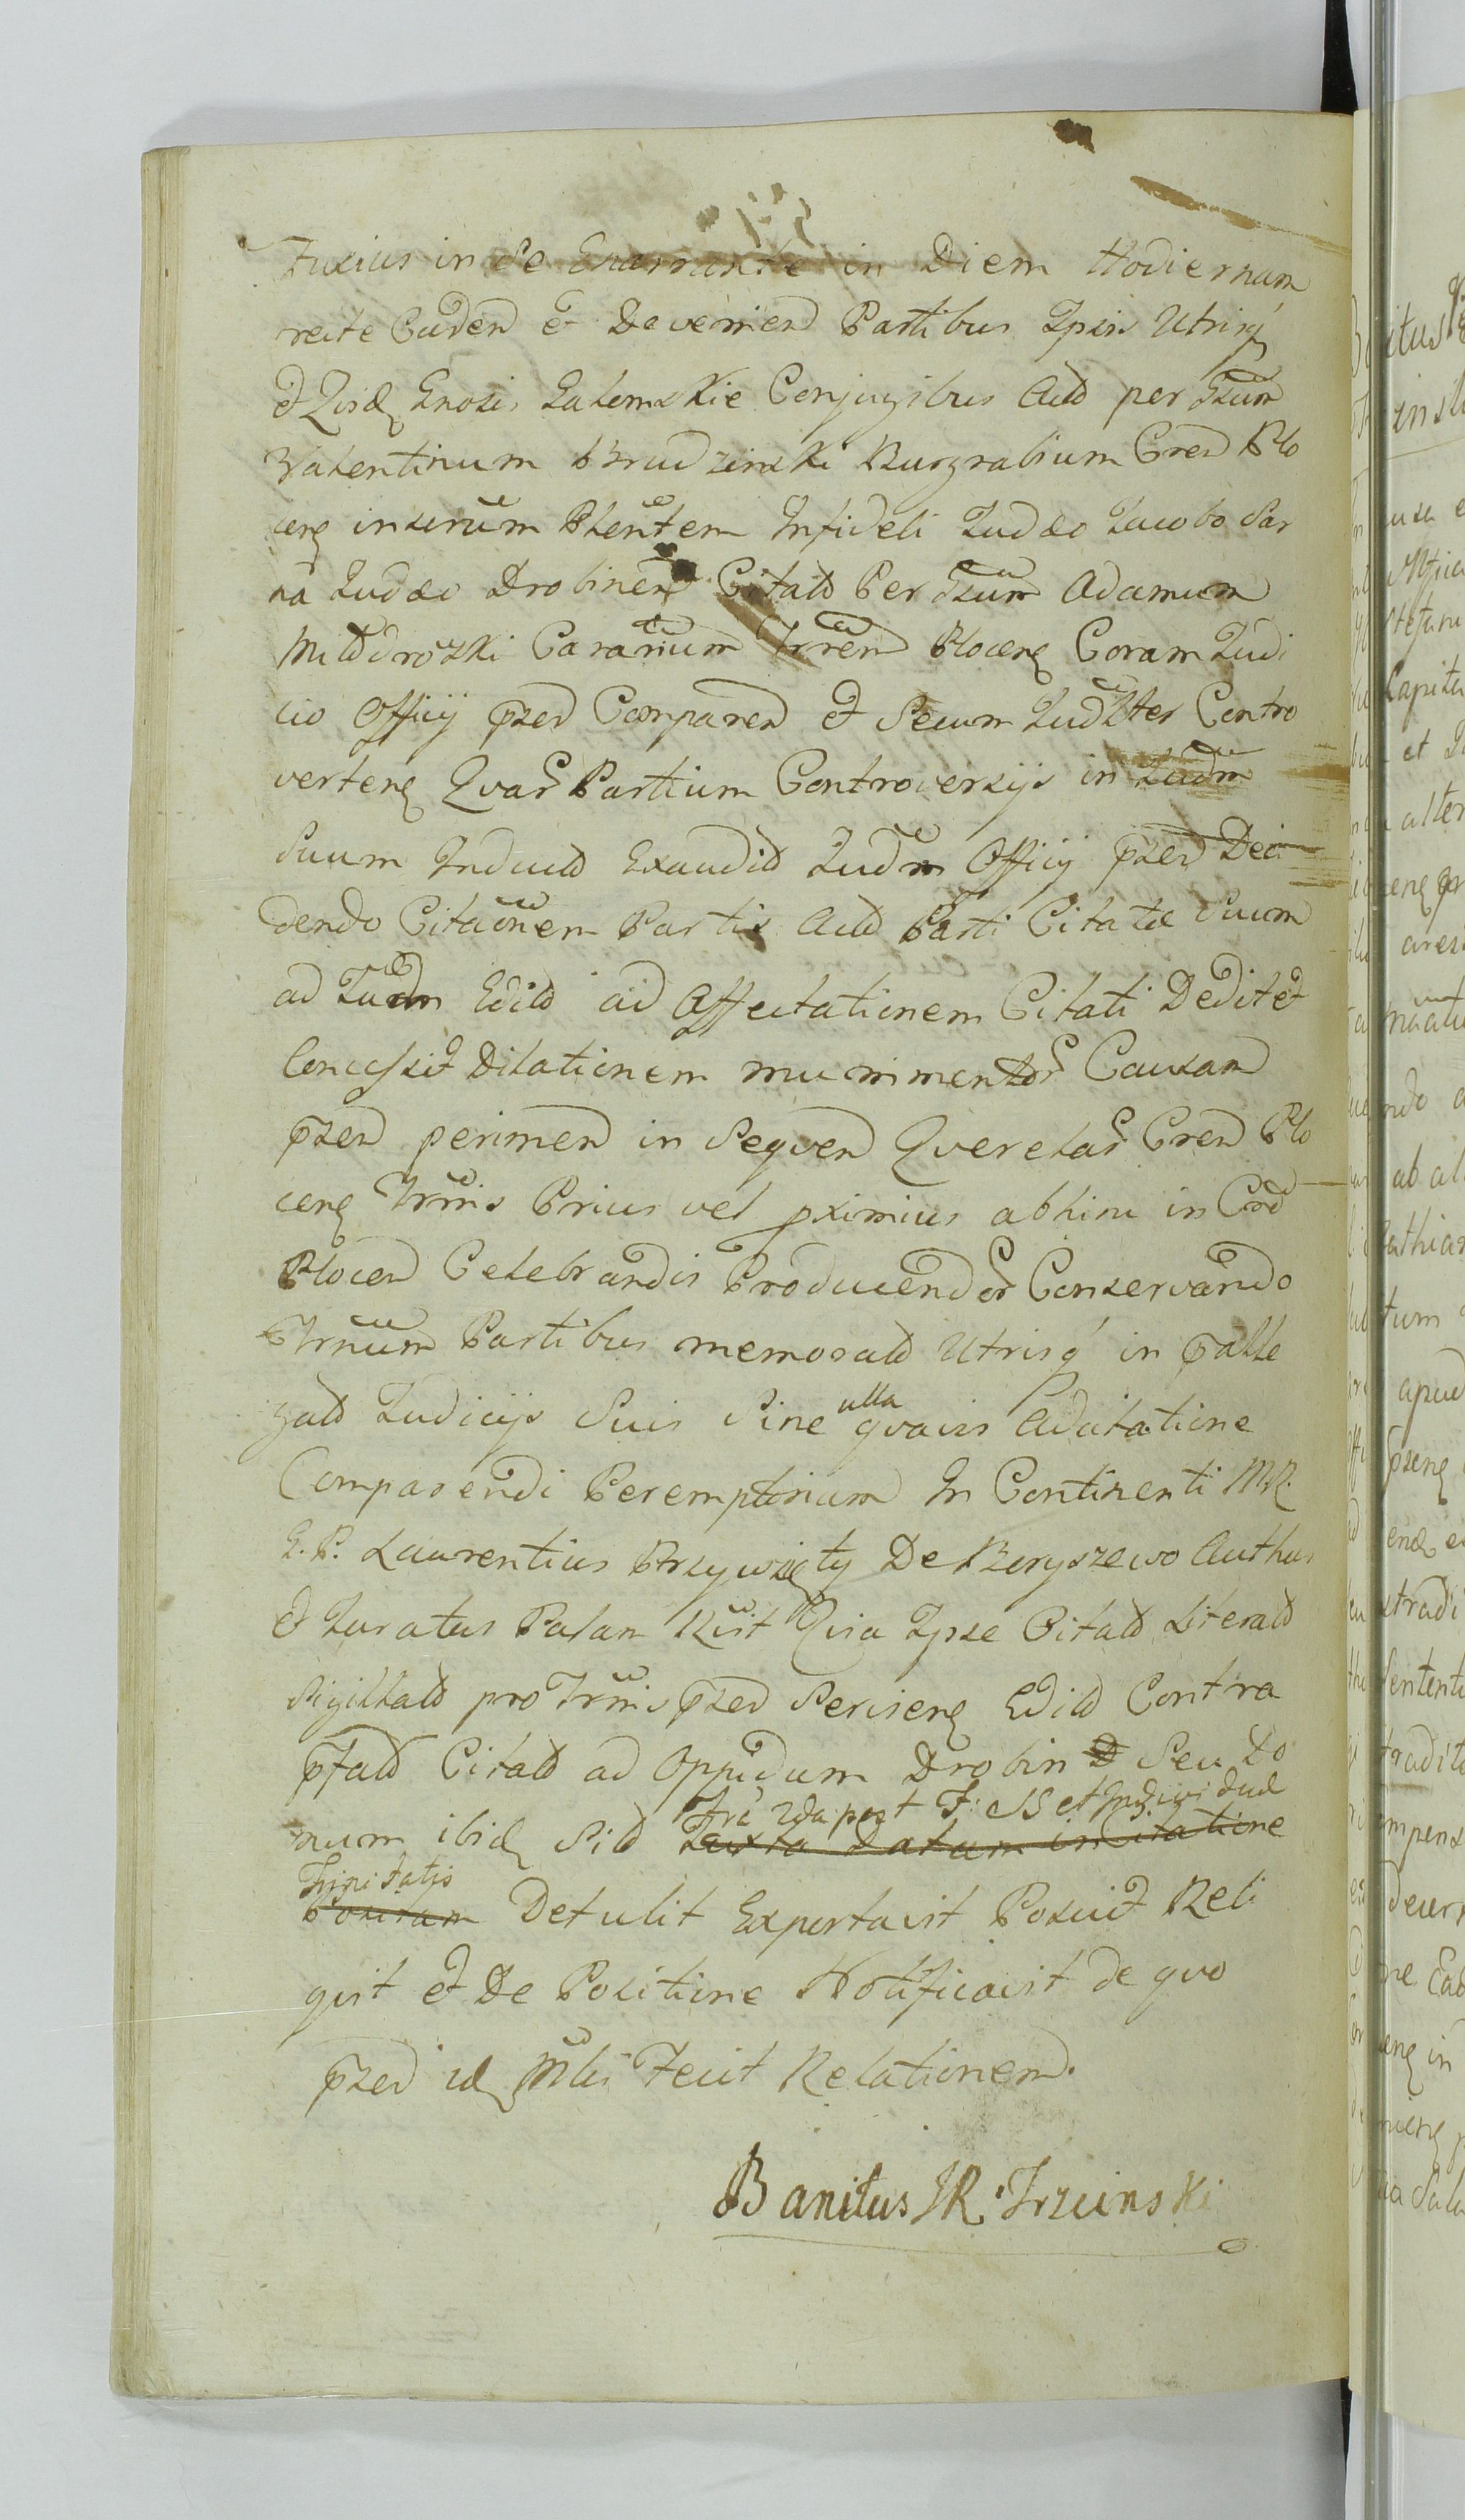 Fusius in Se Enarrante in Diem Hodiernam
recte Caden et Devenien Partibus Ipsis Utrinq
et Iisdq Gnosis Zalemskie Conjugibus Acto per Gsum
Valentinum Brudzinski Burgrabium Cren Plo
cenq inserum Plenitem Infideli Judæo Jacobo Sar
na Judæo Drobinen Citato Per Gsum Adamum
Miłodroski Caranum Trren Plocenq Coram Judi
cio Officij pzed Comparen et Secum Judlter Contro
vertenq Qvar Partium Controversijs in Judm
Suum Induct Exaudit Judm Officij pzed Deci
dendo Citaonem Partis Acto Parti Citatæ Suum
ad Judm Edito ad Affectationem Citati Dedit et
Concessit Dilationem munimentor Causam
pzen perimen in Seqven Qverelar Cren Plo
cenq Trmis Prius vel pximius abhinc in Cro
Plocen Celebrandis Producendor Conservando
Trnum Partibus memorato Utrisq in palle
gato Judicijs Suis Sine ulla qvavis Adcitatione
Comparendi Peremptorium In Continenti MR.
G. P. Laurentius Przywzięty De Boryszewo Authus
et Juratus Palam Rcit Quia Ipse Citato Literato
Sigillato pro Trmis pzed Servienq Edito Contra
pfato Citato ad Oppidum Drobin D Seu Do
num ibidq Sito Juxta Datam in Citatione
Fri 2da post F: SS et Individuæ
Trinitatis
Positam Detulit Exportavit Posuit Reli
qvit et De Positione Notificavit de qvo
pzed idq Mlis Fecit Relationem.
Banitus JR. Trzcinski